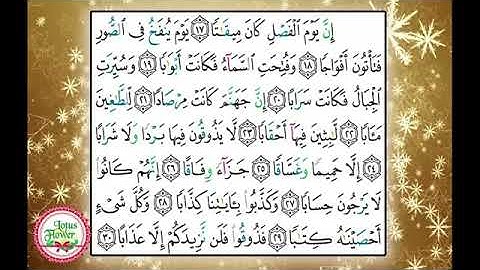 إِنَّ يَوْمَ ٱلْفَصْلِ كَانَ مِيقَـٰتًا ١٧ يَوْمَ يُنفَخُ فِى ٱلصُّورِ
فَتَأْتُونَ أَفْوَاجًا ١٨ وَفُتِحَتِ ٱلسَّمَآءُ فَكَانَتْ أَبْوَٰبًا ١٩ وَسُيِّرَتِ
ٱلْجِبَالُ فَكَانَتْ سَرَابًا ٢٠ إِنَّ جَهَنَّمَ كَانَتْ مِرْصَادًا ٢١ لِّلطَّـٰغِينَ
مَـَٔابًا ٢٢ لَّـٰبِثِينَ فِيهَآ أَحْقَابًا ٢٣ لَّا يَذُوقُونَ فِيهَا بَرْدًا وَلَا شَرَابًا
٢٤ إِلَّا حَمِيمًا وَغَسَّاقًا ٢٥ جَزَآءً وِفَاقًا ٢٦ إِنَّهُمْ كَانُوا۟
لَا يَرْجُونَ حِسَابًا ٢٧ وَكَذَّبُوا۟ بِـَٔايَـٰتِنَا كِذَّابًا ٢٨ وَكُلَّ شَىْءٍ
أَحْصَيْنَـٰهُ كِتَـٰبًا ٢٩ فَذُوقُوا۟ فَلَن نَّزِيدَكُمْ إِلَّا عَذَابًا ٣٠
Lotus
Flower